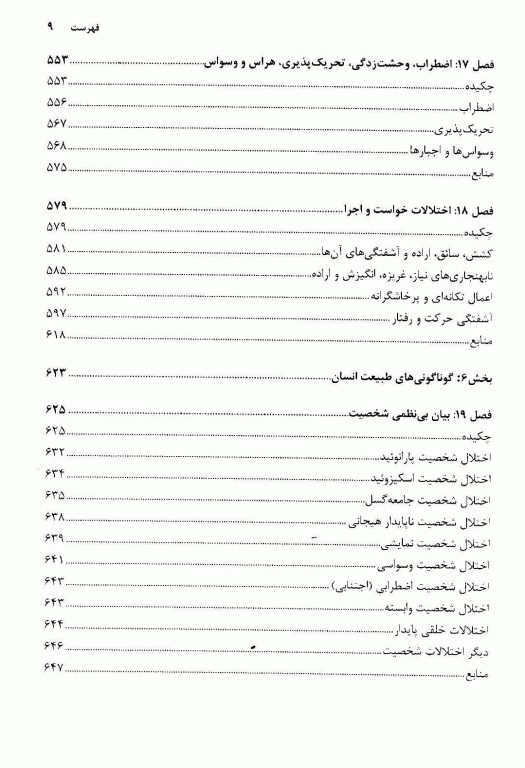 فهرست ۹
فصل ۱۷: اضطراب، وحشت‌زدگی، تحریک‌پذیری، هراس و وسواس ۵۵۳
چکیده ۵۵۳
اضطراب ۵۵۶
تحریک‌پذیری ۵۶۷
وسواس‌ها و اجبارها ۵۶۸
منابع ۵۷۵
فصل ۱۸: اختلالات خواست و اجرا ۵۷۹
چکیده ۵۷۹
کشش، سائق، اراده و آشفتگی‌های آن‌ها ۵۸۱
نابهنجاری‌های نیاز، غریزه، انگیزش و اراده ۵۸۵
اعمال تکانه‌ای و پرخاشگرانه ۵۹۲
آشفتگی حرکت و رفتار ۵۹۷
منابع ۶۱۸
بخش ۶: گوناگونی‌های طبیعت انسان ۶۲۳
فصل ۱۹: بیان بی‌نظمی شخصیت ۶۲۵
چکیده ۶۲۵
اختلال شخصیت پارانوئید ۶۳۲
اختلال شخصیت اسکیزوئید ۶۳۴
اختلال شخصیت جامعه‌گسل ۶۳۵
اختلال شخصیت ناپایدار هیجانی ۶۳۸
اختلال شخصیت نمایشی ۶۳۹
اختلال شخصیت وسواسی ۶۴۱
اختلال شخصیت اضطرابی (اجتنابی) ۶۴۳
اختلال شخصیت وابسته ۶۴۳
اختلالات خلقی پایدار ۶۴۴
دیگر اختلالات شخصیت ۶۴۶
منابع ۶۴۷